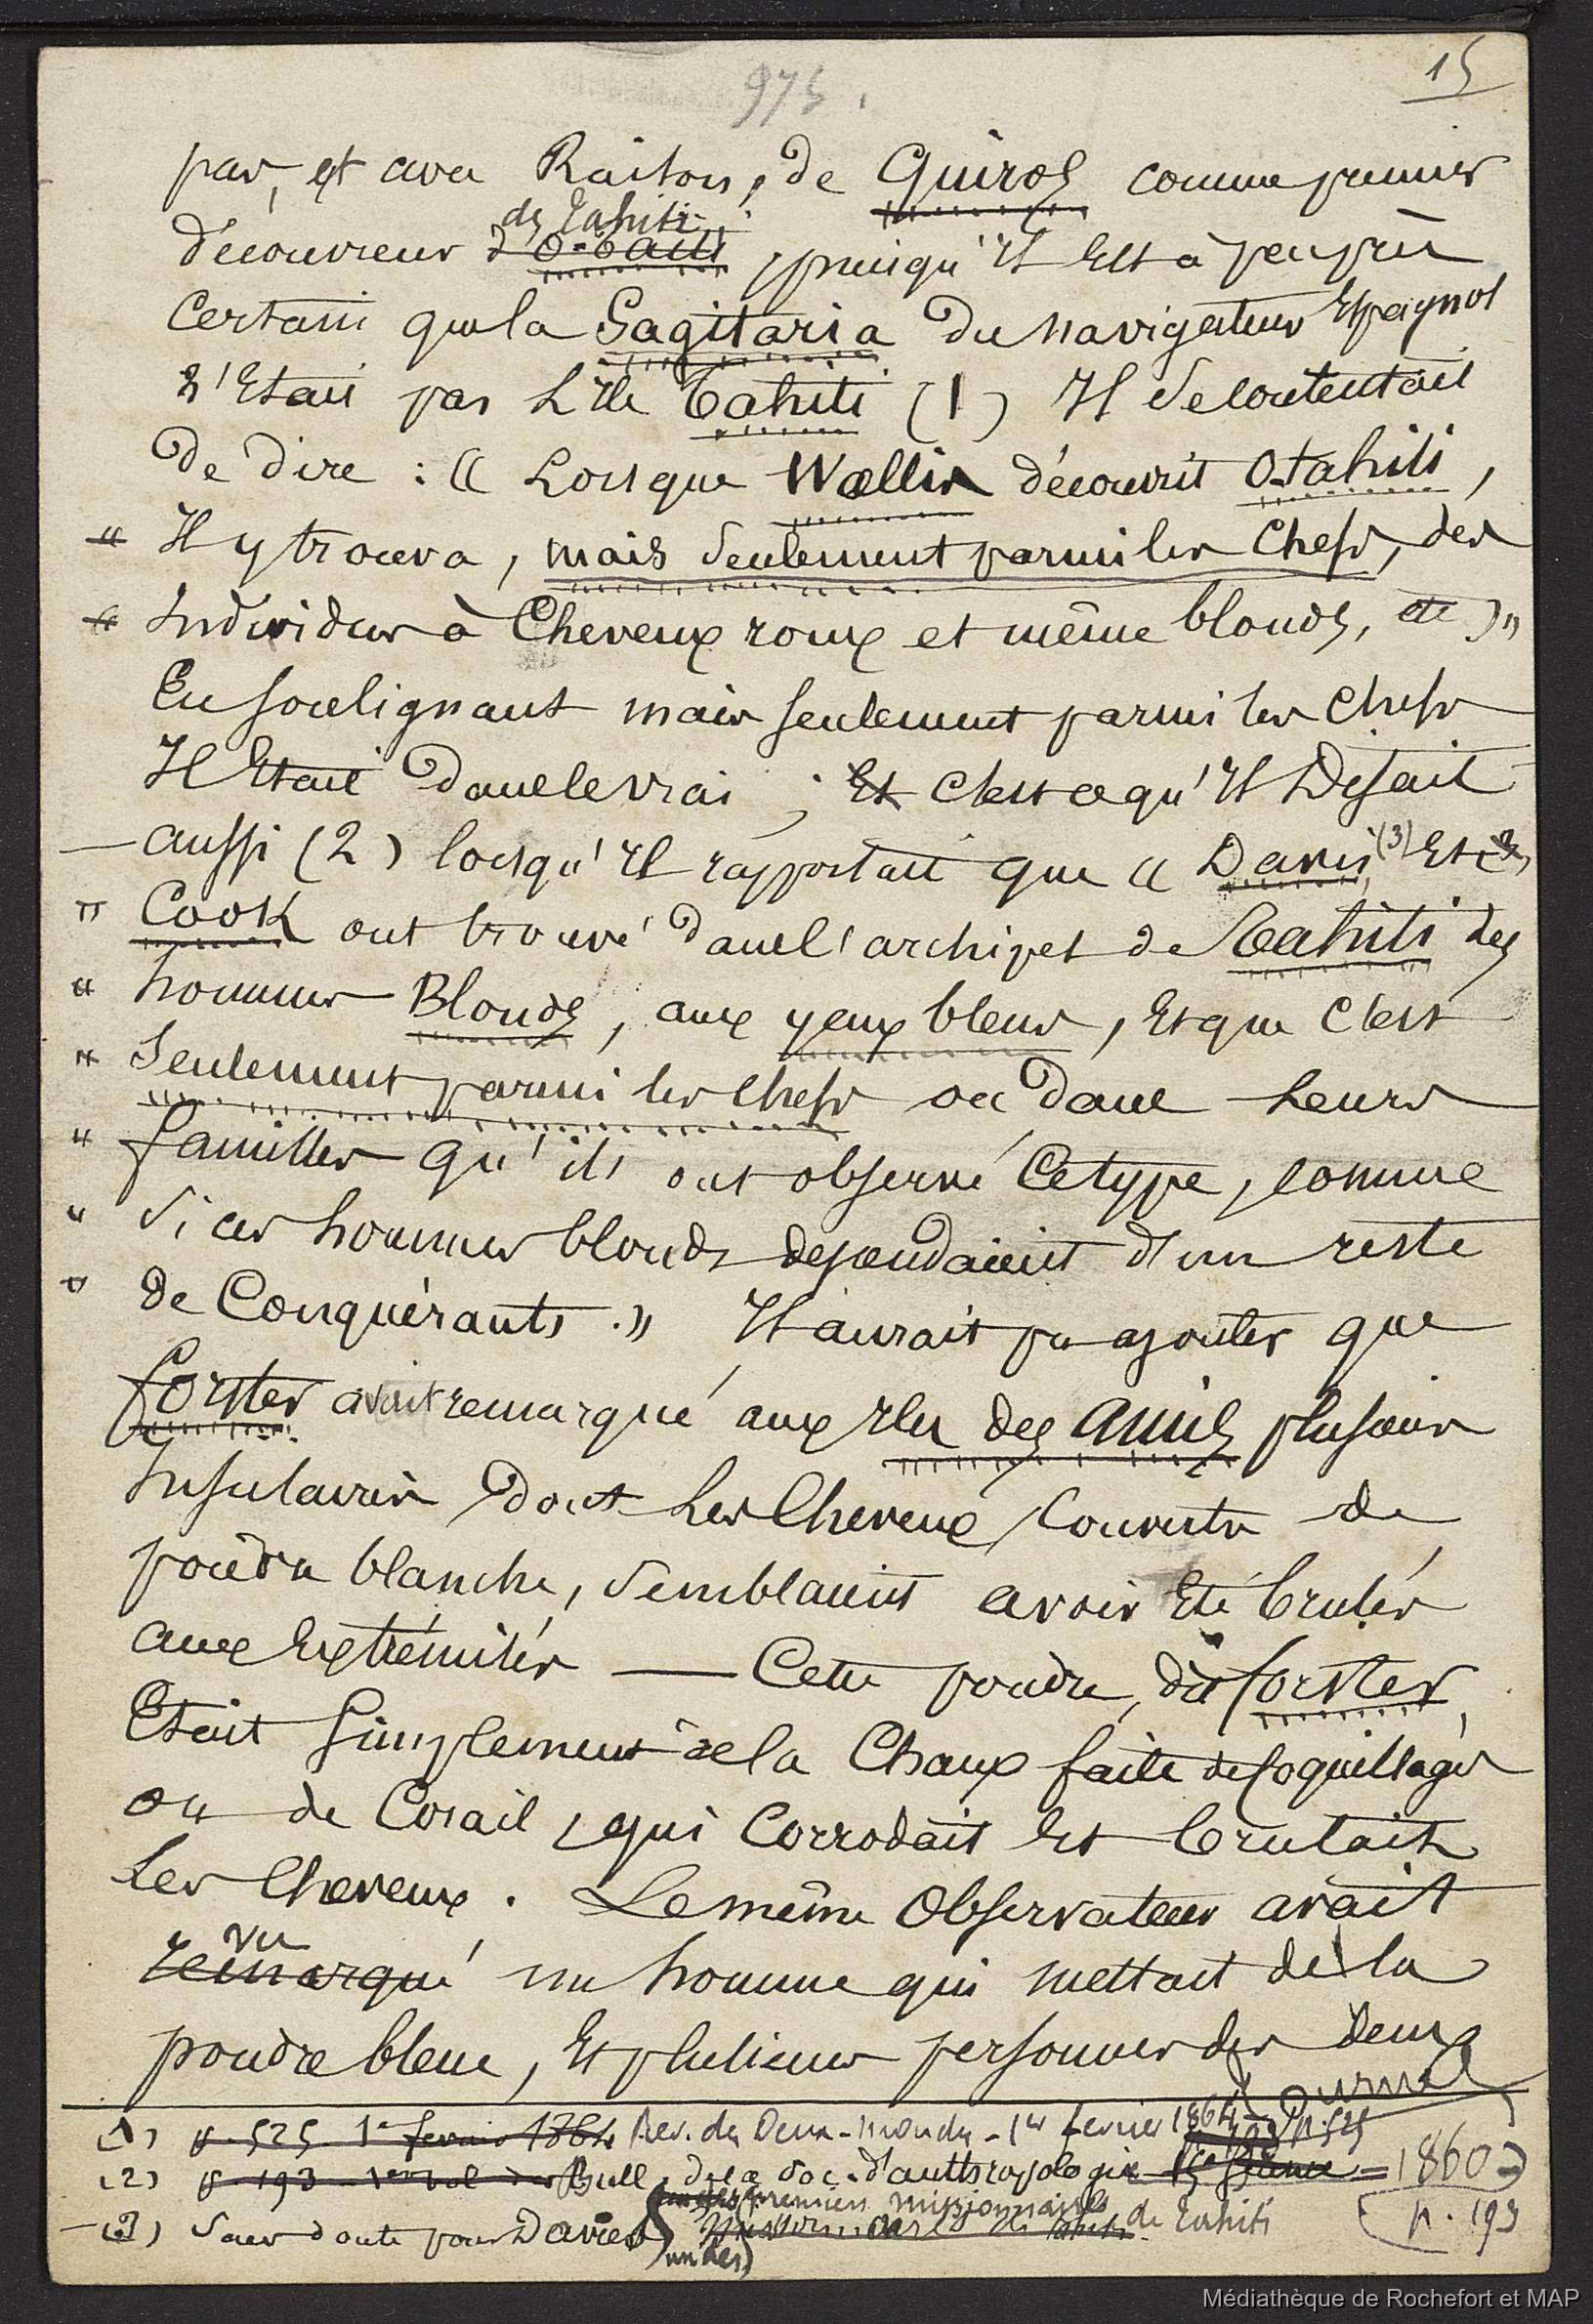 975.
15
pas, et avec Raison, de Quiros comme premier
de Tahiti
découvreur d'O-Taïti, puisqu'il est à peu près
Certain que la Sagitaria du navigateur Espagnol
n'Etait pas L'île Tahiti (1) Il se contentait
De dire : « Lorsque Wallis découvrit O-tahiti,
« Il y trouva, mais seulement parmi les Chefs, des
« Individus à Cheveux roux et même blonds, etc »
En soulignant mais seulement parmi les chefs
Il Etait dans le vrai ; Et C'est ce qu'il Disait
— aussi (2) lorsqu'il rapportait que « Davis (3) Et
" Cook ont trouvé dans l'archipel de Tahiti des
« hommes Blonds, aux yeux bleus, Et que C'est
« Seulement parmi les chefs ou dans Leurs
« familles qu'ils ont observé Ce type, comme
« Si ces hommes blonds descendaient d'un reste
" de Conquérants. » Il aurait pu ajouter que
forster avait remarqué aux Iles des Amis plusieurs
Insulaires dont Les Cheveux Couverts de
poudre blanche, Semblaient avoir Eté brulés
aux Extrémités — Cette poudre, dit forster,
Etait Simplement de la Chaux faite de Coquillages
ou de Corail, qui Corrodait Et brulait
Les Cheveux. Le même Observateur avait
vu
remarqué un homme qui mettait de la
poudre bleue, Et plusieurs personnes des deux
(1) p. 525. 1er fevrier 1864 Rev. des Deux-mondes - 1er fevrier 1864 p. 525
(2) p. 193 1er vol des Bull. de la Soc. d'anthropologie = 1860
p. 193
— (3) Sans doute pour Davies
(un des) premiers missionnaires de Tahiti
Médiathèque de Rochefort et MAP